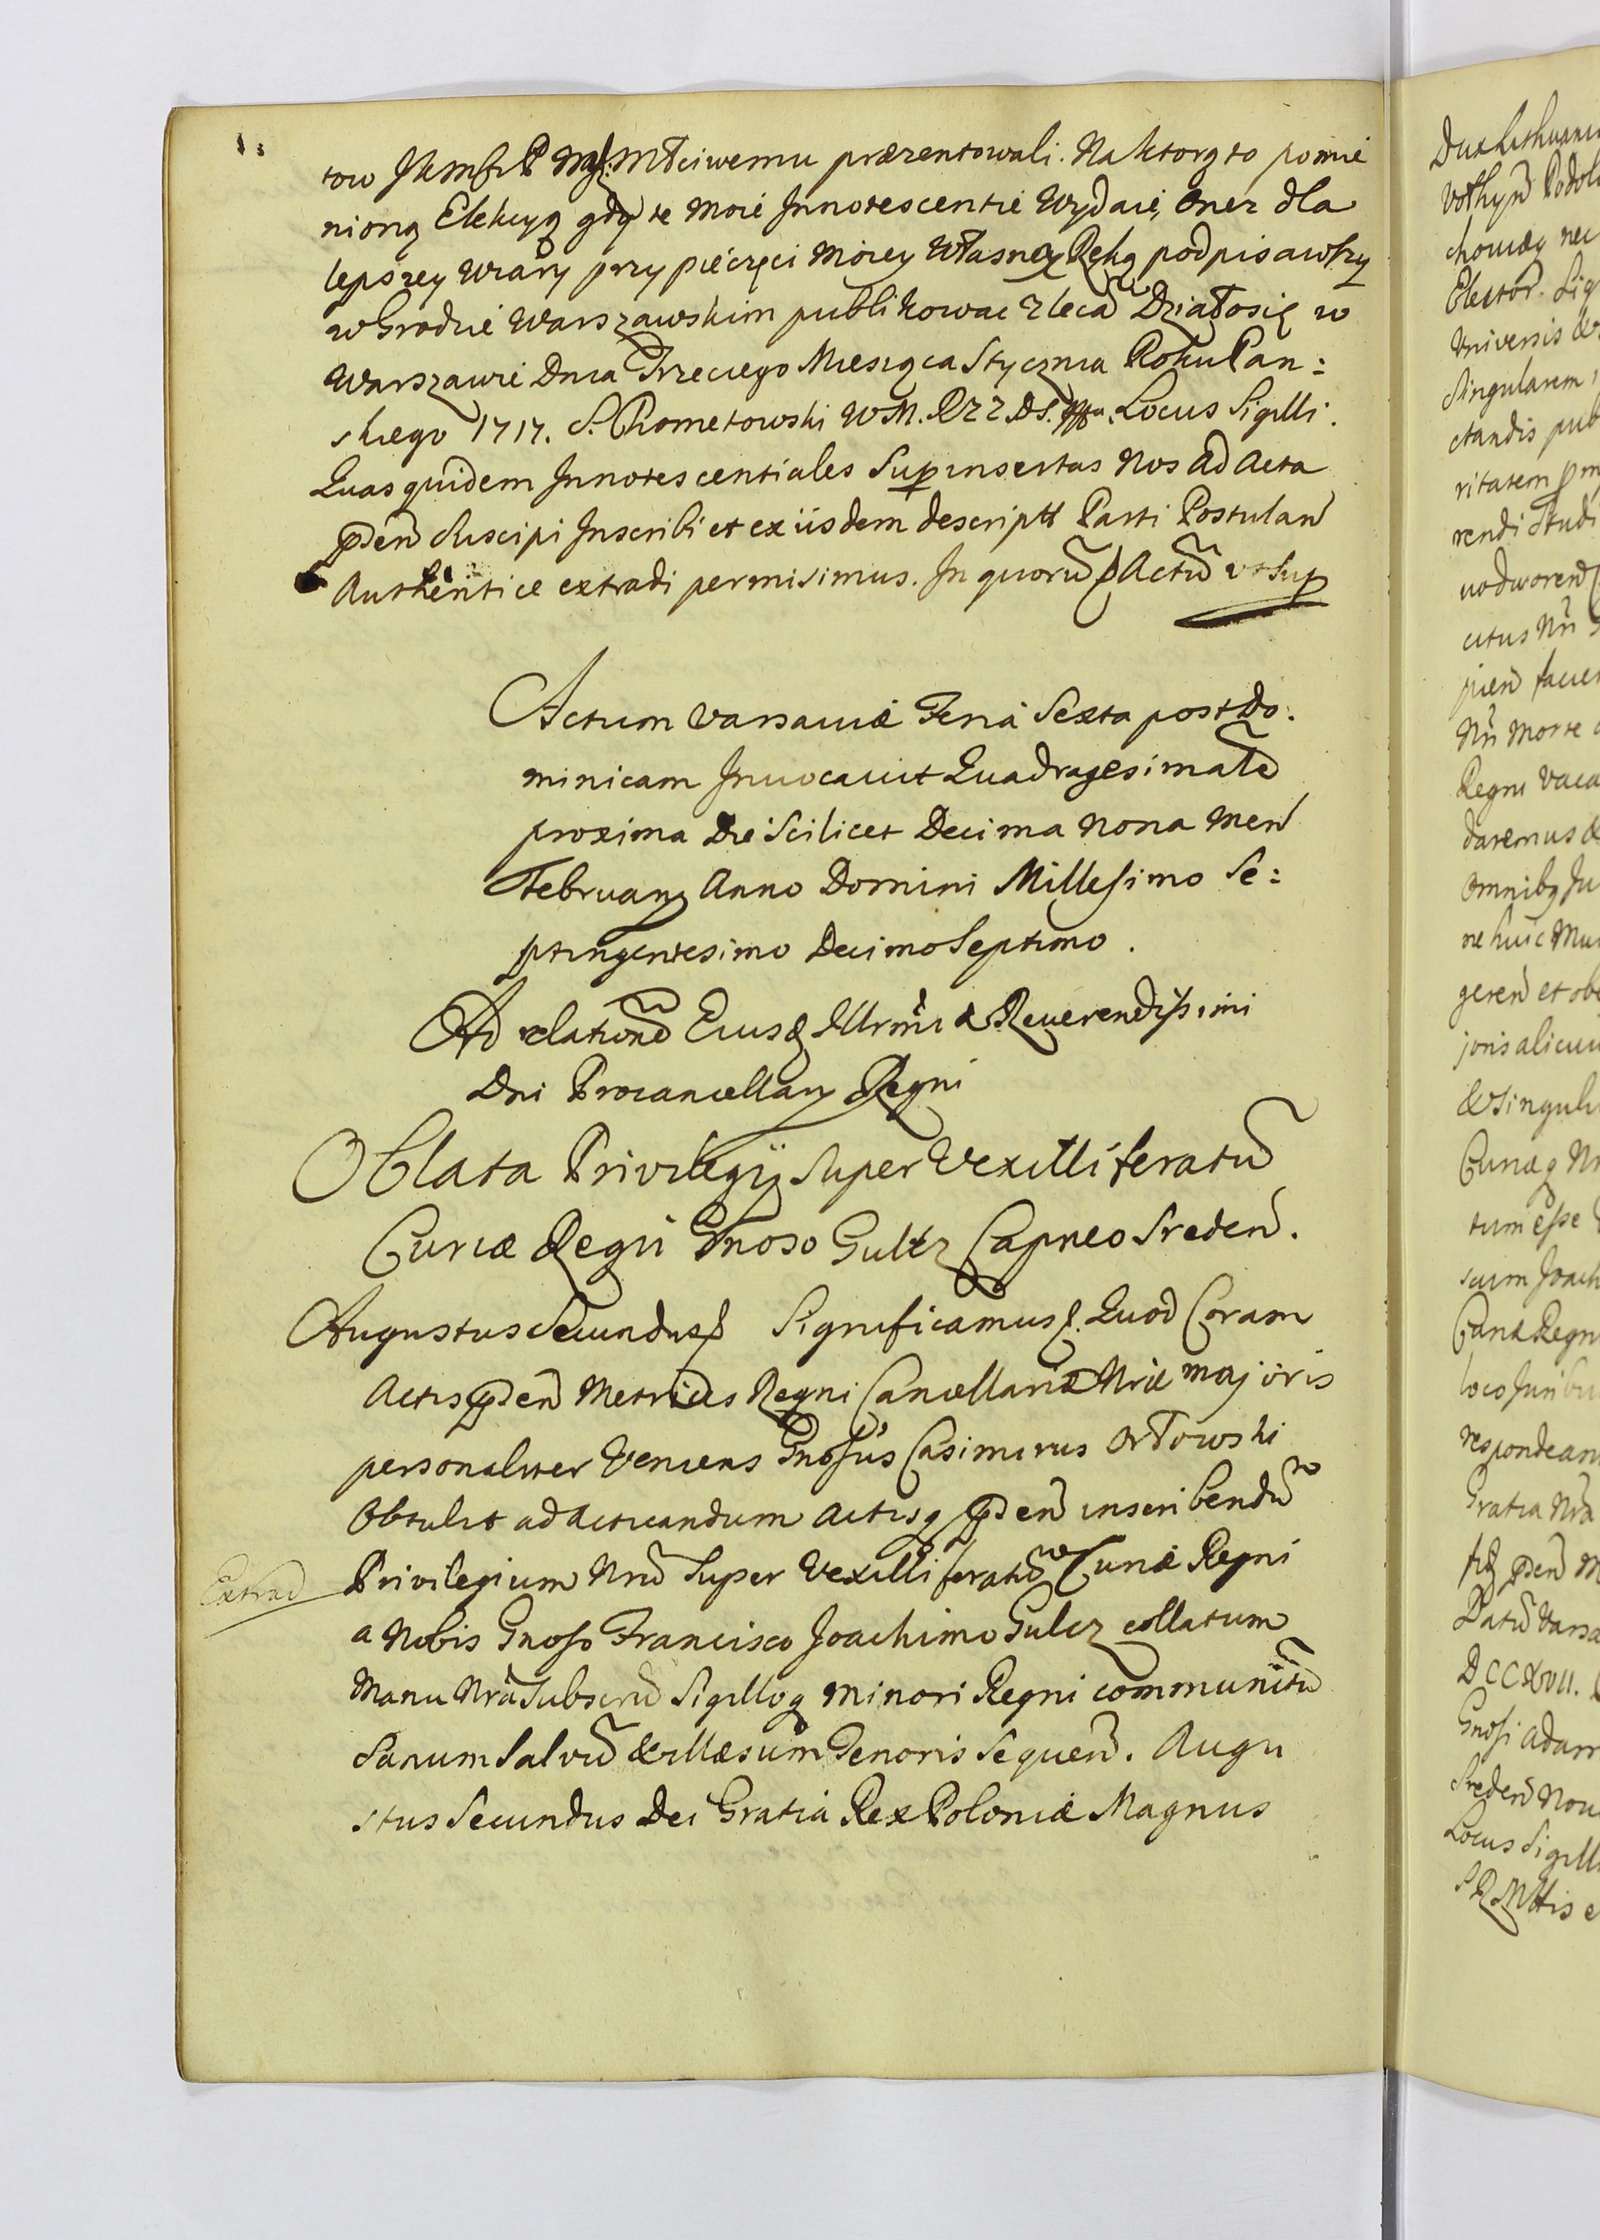 tow JKMści P Mgo: Młciwemu præzentowali. Na ktorą to pomie
nioną Elekcyą gdy te moie Innotescentie Wydaię, onez dla
lepszey wiary przy pieczęci moiey Własney Ręką podpisawszy
w Grodzie Warszawskim publikowac zlecā Działosię w
Warszawie Dnia Trzeciego Miesiąca Stycznia Roku Pan:
skiego 1717. S. Chometowski W M. Locus Sigilli.
Quas quidem Innotescentiales Sup insertas Nos ad Acta
pden Suscipi Inscribi et ex iisdem descriptt Parti Postulan
Authentice extradi permisimus. In quorū Actū ut Sup
Actum Varsaviæ Feria Sexta post Do:
minicam Invocavit Quadragesimalē
proxima Die Scilicet Decima Nona Men
Februarij Anno Domini Millesimo Se:
ptingentesimo Decimo Septimo.
Ad relationē Eiusd Illrmi & Reverendissimi
Dni Procancellarij Regni
Oblata Privilegij super Vexilliferatū
Curiæ Regni Gnoso Gultz Capneo Sreden.
Augustus Secundus Significamus. Quod Coram
Actis pden Metrices Regni Cancellariæ Nræ majoris
personaliter Veniens Gnosus Casimirus Orłowski
Obtulit ad Acticandum Actisq pden inscribendū
Extrad
Privilegium Nrū Super Vexilliferatū Curiæ Regni
a Nobis Gnoso Francisco Joachimo Gultz collatum
Manu Nra Subscrū Sigilloq minori Regni communitū
Sanum Salvū & illæsum Tenoris Sequen. Augu
stus Secundus Dei Gratia Rex Poloniæ Magnus
Dux Lithuani
Volhyn Podol
Elector. Sig
Universis &
Singularem
ctandis pub
ritatem
rendi Studi
citus Nri
Nri Morte
Regni Vaca
daremus &
Omnibq Ju
ne huic Mu
geren et ob
joris alicui
& Singuli
Curiæq Nr
tum esse
sum Joach
Curiæ Regn
loco Juribu
respondeant
Gratia Nra
pden M
Datū Varsa
DCCXVII.
Gnosi Adam
Sreden Nou
Locus Sigilli